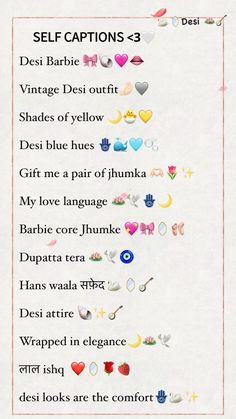 🦢🪞Desi 🪷
SELF CAPTIONS <3🤍
Desi Barbie 🎀🐚🩷💋
Vintage Desi outfit🤌🏻🩶
Shades of yellow 🌙🤭💛
Desi blue hues 🪬🐳🩵🫧
Gift me a pair of jhumka 🫶🏻🌷✨
My love language 🪷🪬🌙
Barbie core Jhumke 💖🎀🪞🩰
Dupatta tera 🪷🕊️🧿
Hans waala सफ़ेद 🦢🪞🪕
Desi attire 🐚✨🪕
Wrapped in elegance🌙🪷🕊️
लाल ishq ❤️🪞🌹🍓
desi looks are the comfort🪬🦢✨